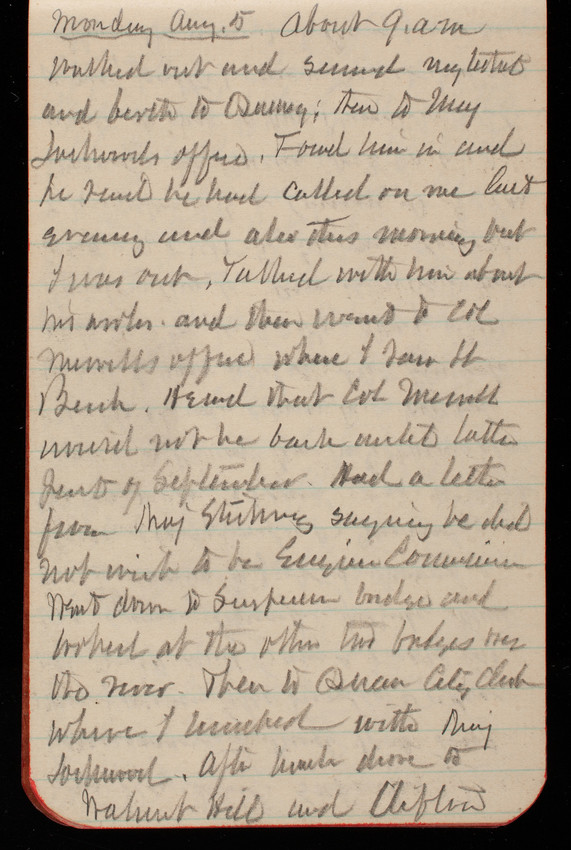 Monday Aug. 5 About 9. a.m
Walked out and secured
and berth to ; then to Maj
Lockwoods office. Found him in and
he said he had called on me last
evening and also this morning but
I was out. Talked with him about
his and then went to Col
Merrills office where I saw Lt
. Heard that Col Merrill
would not be back until latter
part of September. Had a letter
from Maj saying he did
not wish to be Engineer Commissioner
Went down to Suspension bridge and
looked at the other two bridges over
the river. Then to Queen City Club
where I lunched with Maj
Lockwood. After lunch drove to
Walnut Hill and Clifton